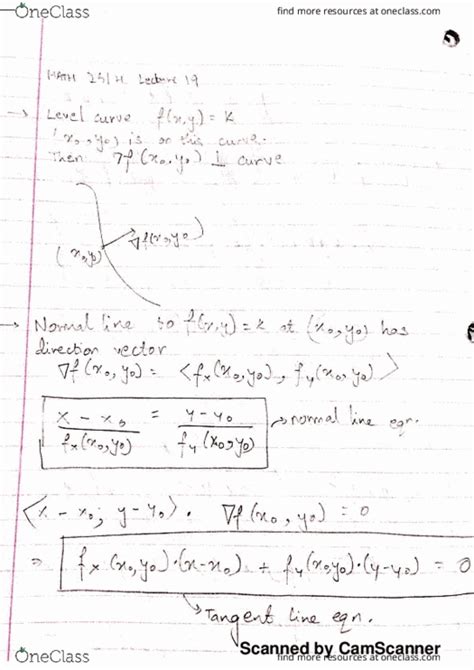 OneClass
find more resources at oneclass.com
MATH 251H Lecture 19
→ Level curve f(x,y) = k
(x₀,y₀) is on this curve.
Then ∇f(x₀,y₀) ⊥ curve
(x₀,y₀) ∇f(x₀,y₀)
→ Normal line to f(x,y)=k at (x₀,y₀) has
direction vector
∇f(x₀,y₀) = <fx(x₀,y₀), fy(x₀,y₀)>
x - x₀ / fx(x₀,y₀) = y - y₀ / fy(x₀,y₀) → normal line eqn.
<x - x₀, y - y₀> · ∇f(x₀,y₀) = 0
⇒ fx(x₀,y₀)·(x-x₀) + fy(x₀,y₀)·(y-y₀) = 0
Tangent line eqn.
Scanned by CamScanner
OneClass
find more resources at oneclass.com